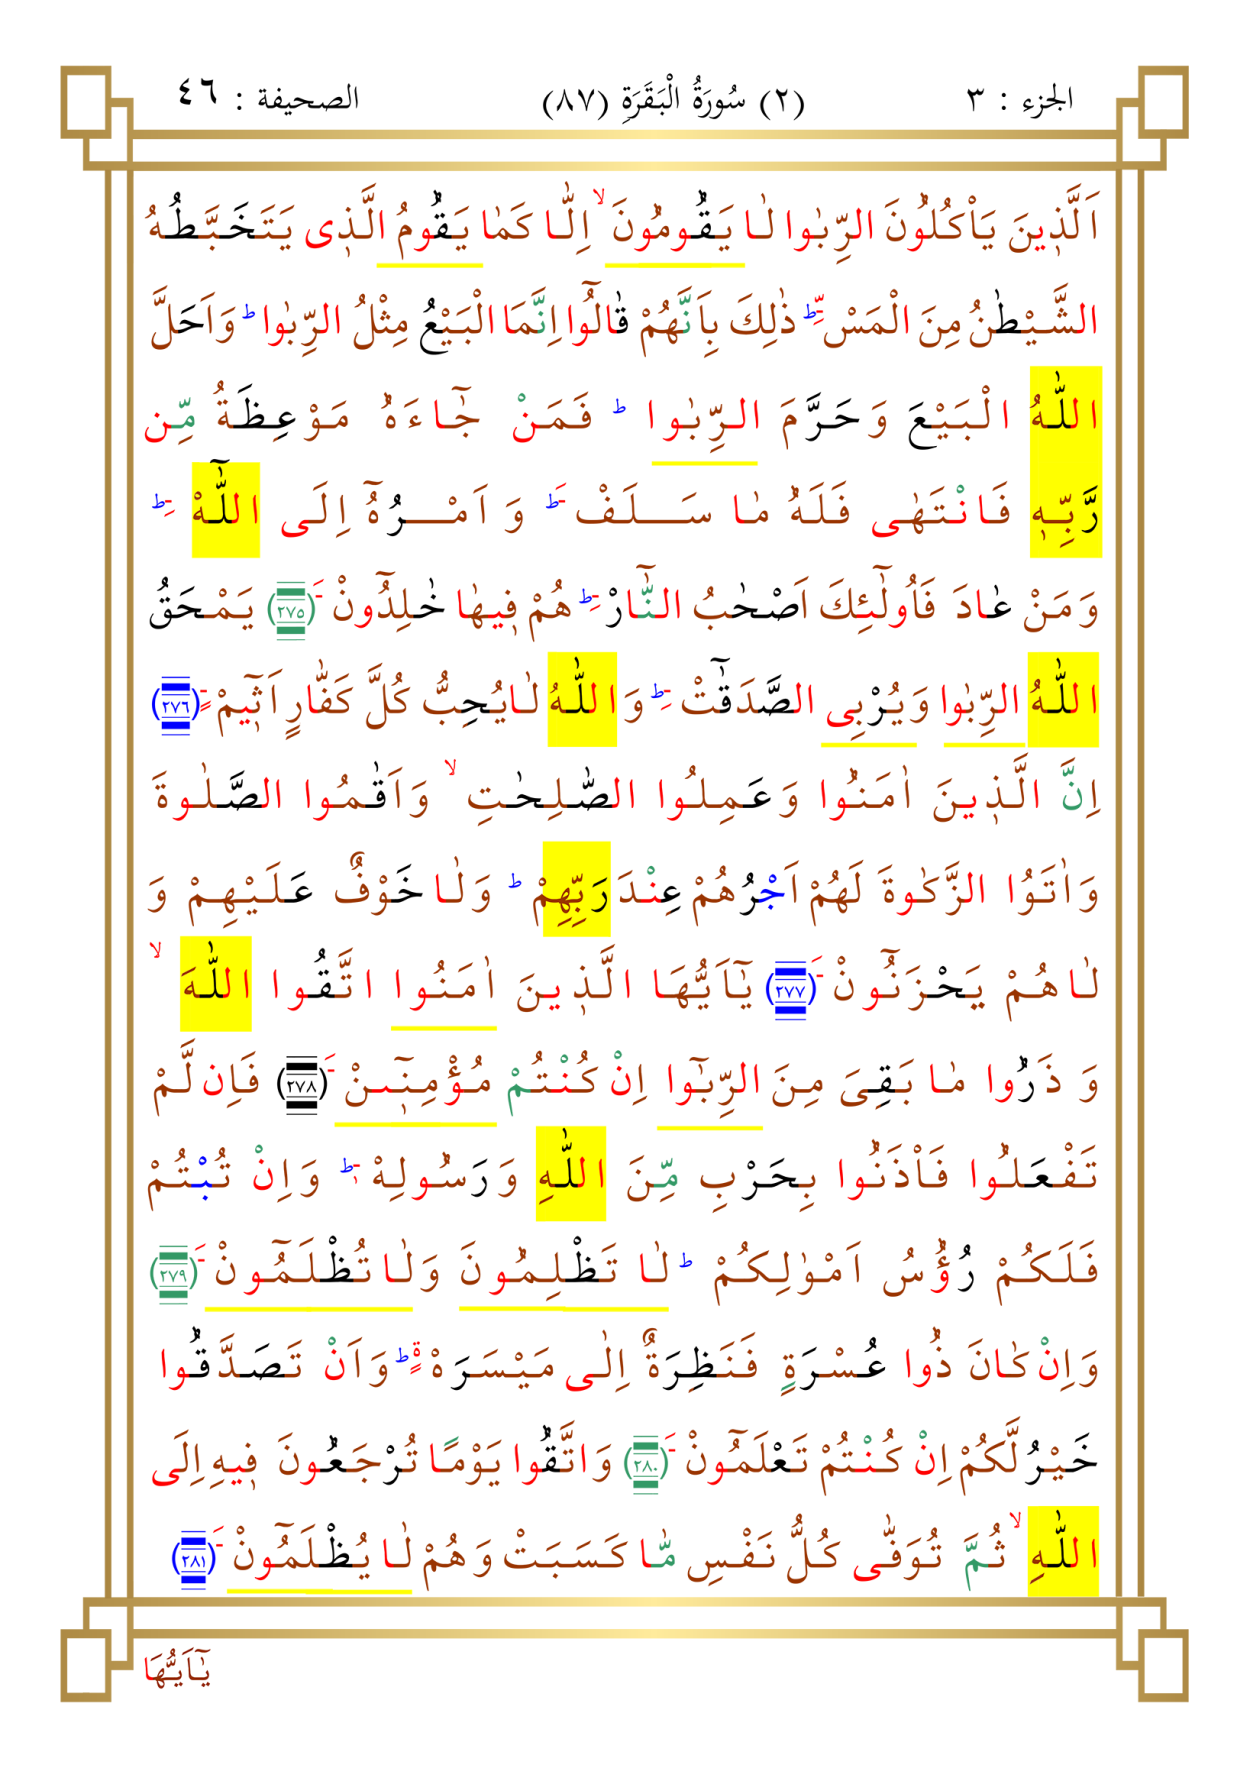 الجزء : ٣
(٢) سُورَةُ الْبَقَرَةِ (٨٧)
الصحيفة : ٤٦
اَلَّذ۪ينَ يَاْكُلُونَ الرِّبٰوا لَا يَقُومُونَ ۙ اِلَّا كَمَا يَقُومُ الَّذ۪ى يَتَخَبَّطُهُ
الشَّيْطٰنُ مِنَ الْمَسِّْ ؕ ذٰلِكَ بِاَنَّهُمْ قَالُٓوا اِنَّمَا الْبَيْعُ مِثْلُ الرِّبٰوا ؕ وَاَحَلَّ
اللّٰهُ الْبَيْعَ وَحَرَّمَ الرِّبٰوا ؕ فَمَنْ جَٓاءَهُ مَوْعِظَةٌ مِّن
رَّبِّه۪ فَانْتَهٰى فَلَهُ مَا سَلَفَْ ؕ وَ اَمْرُهُٓ اِلَى اللّٰهِْ ؕ
وَمَنْ عَادَ فَاُولٰٓئِكَ اَصْحٰبُ النَّارِْ ؕ هُمْ ف۪يهَا خٰلِدُونَْ (٢٧٥) يَمْحَقُ
اللّٰهُ الرِّبٰوا وَيُرْبِى الصَّدَقٰتِْ ؕ وَاللّٰهُ لَايُحِبُّ كُلَّ كَفَّارٍ اَث۪يمٍْ (٢٧٦)
اِنَّ الَّذ۪ينَ اٰمَنُوا وَعَمِلُوا الصّٰلِحٰتِ ۙ وَاَقٰمُوا الصَّلٰوةَ
وَاٰتَوُا الزَّكٰوةَ لَهُمْ اَجْرُهُمْ عِنْدَ رَبِّهِمْ ؕ وَلَا خَوْفٌ عَلَيْهِمْ وَ
لَا هُمْ يَحْزَنُونَْ (٢٧٧) يَٓا اَيُّهَا الَّذ۪ينَ اٰمَنُوا اتَّقُوا اللّٰهَ ۙ
وَ ذَرُوا مَا بَقِىَ مِنَ الرِّبٰٓوا اِنْ كُنْتُمْ مُؤْمِن۪ينَْ (٢٧٨) فَاِن لَّمْ
تَفْعَلُوا فَاْذَنُوا بِحَرْبٍ مِّنَ اللّٰهِ وَرَسُولِهْ۪ ؕ وَاِنْ تُبْتُمْ
فَلَكُمْ رُؤُسُ اَمْوٰلِكُمْ ؕ لَا تَظْلِمُونَ وَلَا تُظْلَمُونَْ (٢٧٩)
وَاِنْ كَانَ ذُوا عُسْرَةٍ فَنَظِرَةٌ اِلٰى مَيْسَرَةٍْ ؕ وَاَنْ تَصَدَّقُوا
خَيْرٌ لَّكُمْ اِنْ كُنْتُمْ تَعْلَمُونَْ (٢٨٠) وَاتَّقُوا يَوْمًا تُرْجَعُونَ ف۪يهِ اِلَى
اللّٰهِ ۙ ثُمَّ تُوَفّٰى كُلُّ نَفْسٍ مَّا كَسَبَتْ وَهُمْ لَا يُظْلَمُونَْ (٢٨١)
يَٓا اَيُّهَا